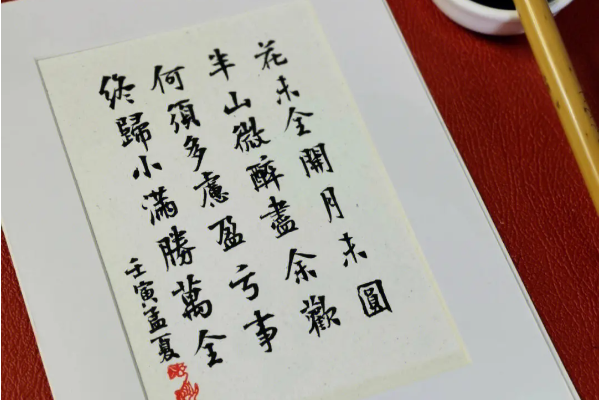 花未全開月未圓
半山微醉盡余歡
何須多慮盈亏事
終歸小滿勝萬全
壬寅孟夏